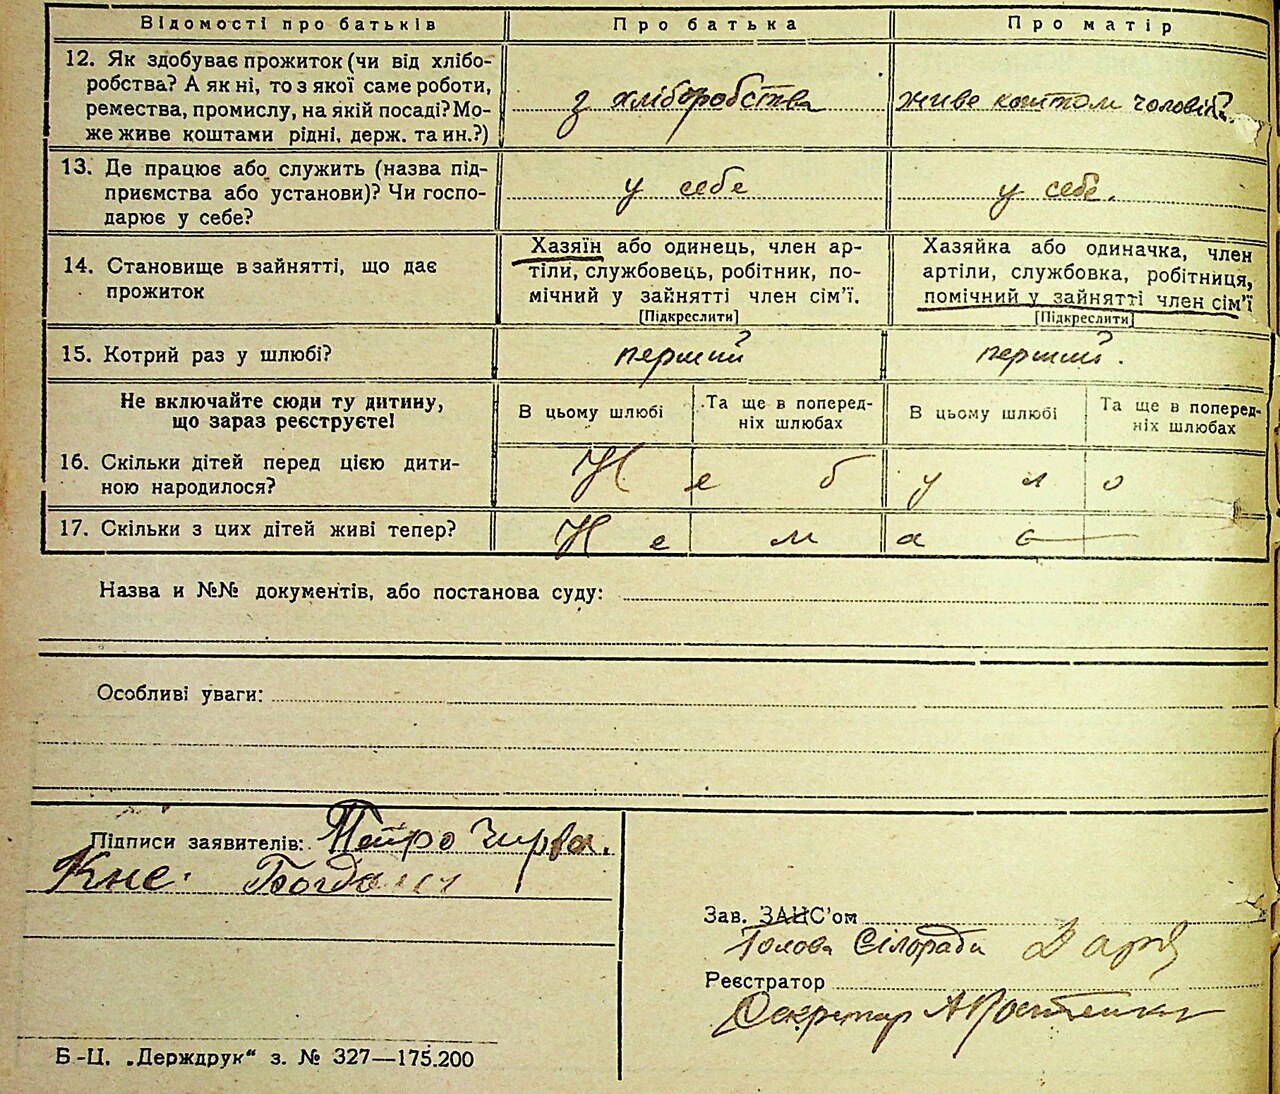 Відомості про батьків
Про батька
Про матір
12. Як здобуває прожиток (чи від хлібо-
робства? А як ні, то з якої саме роботи,
ремества, промислу, на якій посаді? Мо-
же живе коштами рідні, держ. та ин.?)
з хліборобства
живе коштом чоловіка.
13. Де працює або служить (назва під-
приємства або установи)? Чи госпо-
дарює у себе?
у себе
у себе.
14. Становище в зайнятті, що дає
прожиток
Хазяїн або одинець, член ар-
тіли, службовець, робітник, по-
мічний у зайнятті член сім'ї.
[Підкреслити]
Хазяйка або одиначка, член
артіли, службовка, робітниця,
помічний у зайнятті член сім'ї
[Підкреслити]
15. Котрий раз у шлюбі?
перший
перший.
Не включайте сюди ту дитину,
що зараз реєструєте!
В цьому шлюбі
Та ще в поперед-
ніх шлюбах
В цьому шлюбі
Та ще в поперед-
ніх шлюбах
16. Скільки дітей перед цією дити-
ною народилося?
Не було
17. Скільки з цих дітей живі тепер?
Немає
Назва и №№ документів, або постанова суду:
Особливі уваги:
Підписи заявителів: Петро Чирва.
Богдан
Зав. ЗАНС'ом
Голова Сілоради
Реєстратор
Секретар
Б-Ц. „Держдрук" з. № 327—175.200